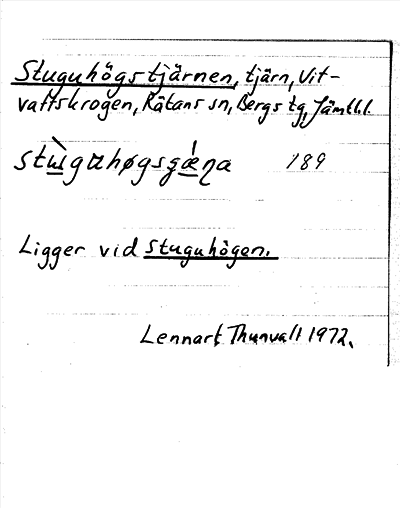 Stuguhögstjärnen, tjärn, Vit-
vattskrogen, Rätans sn, Bergs tg, Jämtl.l.
189
Ligger vid Stuguhögen.
Lennart Thunvall 1972.